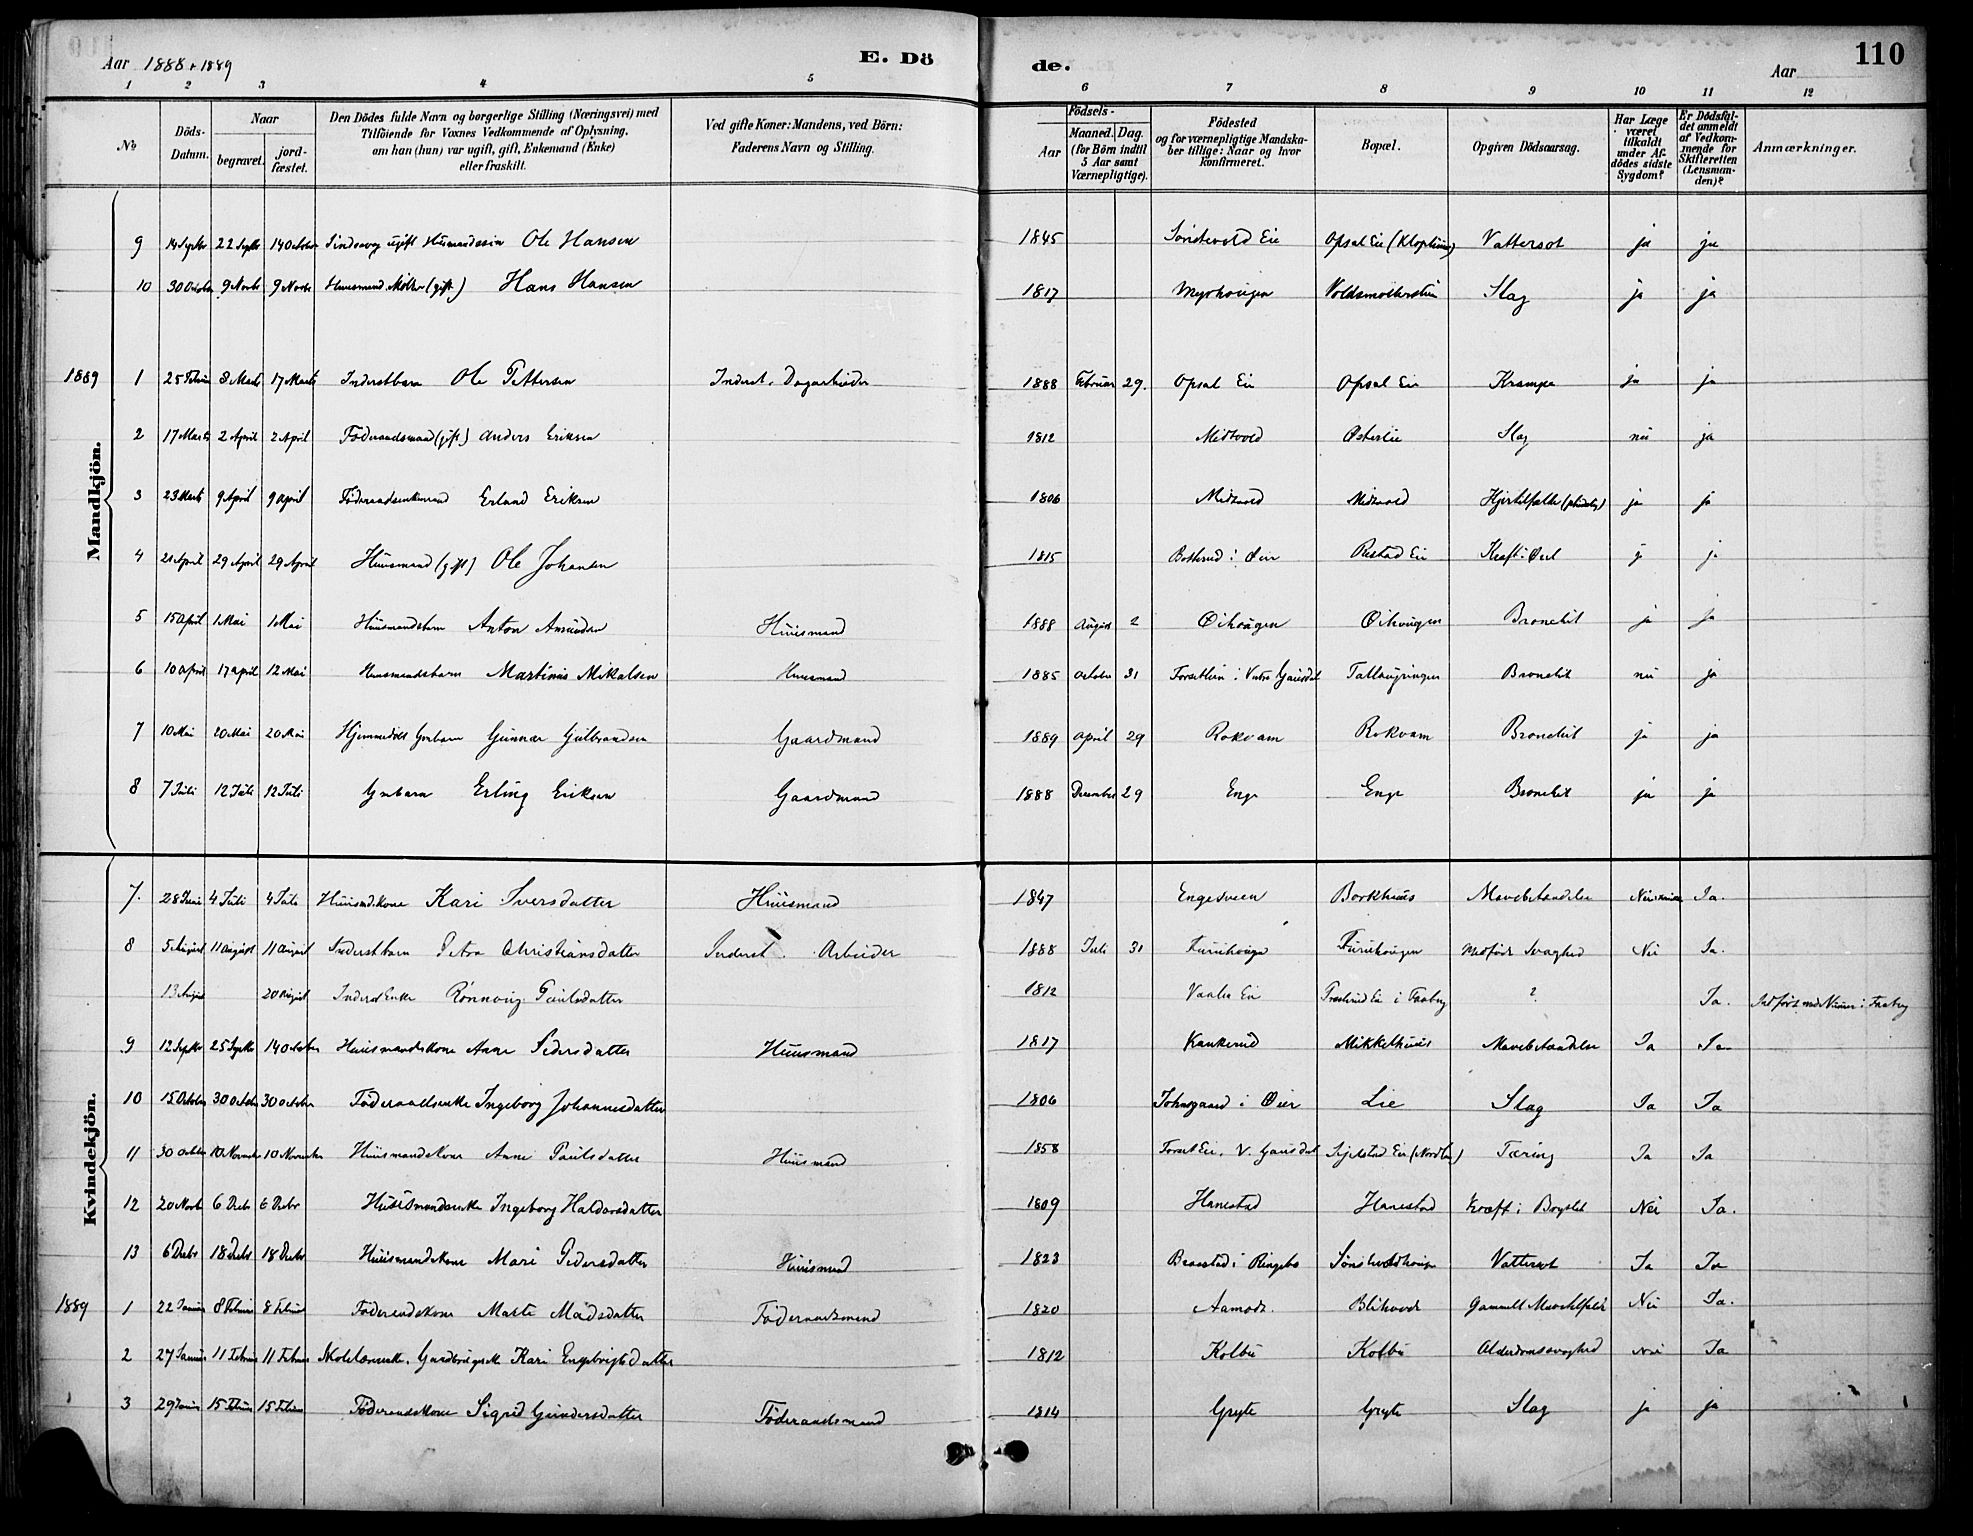 Aar 1888 & 1889 E. Dö de. Aar 110
1 2 3 4 5 6 7 8 9 10 11 12
No
Döds-Datum.
Naar
begravet.
jord-fæstet.
Den Dödes fulde Navn og borgerlige Stilling (Næringsvei) med Tilföiende for Voxnes Vedkommende af Oplysning, om han (hun) var ugift, gift, Enkemand (Enke) eller fraskilt.
Ved gifte Koner: Mandens, ved Börn: Faderens Navn og Stilling.
Födsels-
Aar
Maaned. Dag. (for Börn indtil 5 Aar samt Værnepligtige).
Födested og for værnepligtige Mandskaber tillige: Naar og hvor Konfirmeret.
Bopæl.
Opgiven Dödsaarsag.
Har Læge været tilkaldt under Afdödes sidste Sygdom?
Er Dödsfaldet anmeldt af Vedkommende for Skifteretten (Lensmanden)?
Anmærkninger.
Mandkjön.
9 14 Septbr 22 Septbr 14 October ugift Huusmandssön Ole Hansen 1845 Eie Opsal Eie Vattersot ja ja
10 30 October 9 Novbr 9 Novbr Huusmand (gift) Hans Hansen 1817 Myrhougen Slag ja ja
1889 1 25 Februar 8 Marts 17 Marts Inderstbarn Ole Pettersen Inderst, Dagarbeider 1888 Februar 29. Opsal Eie Opsal Eie Krampe ja ja
2 17 Marts 2 April 2 April Föderaadsmand (gift) Anders Eriksen 1812 Midtvold Østerlie Slag nei ja
3 23 Marts 9 April 9 April Föderaadsenkemand Erland Eriksen 1806 Midtvold Midtvold ja ja
4 21 April 29 April 29 April Huusmand (gift) Ole Johansen 1815 i Øier Eie Kræft i ja ja
5 15 April 1 Mai 1 Mai Huusmandsbarn Anton Amundsen Huusmand 1888 August 2 Øihougen Øihougen Bronchit ja ja
6 10 April 17 April 12 Mai Huusmandsbarn Martinus Mikalsen Huusmand 1885 October 31 i Vestre Gausdal Bronchit nei ja
7 10 Mai 20 Mai 20 Mai Hjemmedöbt Gaardmand Gunnar Gulbrandsen Gaardmand 1889 April 29 Rokvam Rokvam Bronchit ja ja
8 7 Juli 12 Juli 12 Juli Erling Eriksen Gaardmand 1888 December 29 Enge Enge Bronchit ja ja
Kvindekjön.
7. 28 Juni 4 Juli 4 Juli Huusmdskone Kari Iversdatter Huusmand 1847 Engesveen Borkhuus Mavebetændelse Ja.
8 5 August 11 August 11 August Inderstbarn Petra Christiansdatter Inderst. Arbeider 1888 Juli 31 Furuhougen Furuhougen Medfødt Svaghed Nei Ja.
13 August 20 August Inderst Enke Rønnoug Paulsdatter 1812 Eie i Faaberg ? Ja. Indført med Numer i Faaberg
9 12 Septbr 25 Septbr 14 October Huusmandskone Anne Pedersdatter Huusmand 1817 Kankerud Mikkelhuus Mavebetændelse Ja Ja
10 15 October 30 October 30 October Föderaadsenke Ingeborg Johannesdatter 1806 Johnsgaard i Øier Lie Slag Ja Ja
11 30 October 10 November 10 November Huusmandskone Anne Paulsdatter Huusmand 1858 Forset Eie, V. Gausdal Eie Tæring Ja Ja
12 20 Novbr 6 Decbr 6 Decbr Huusmandsenke Ingeborg Haldorsdatter 1809 Hanestad Hanestad Kræft i Brystet Nei Ja.
13 6 Decbr 18 Decbr 18 Decbr Huusmandskone Mari Pedersdatter Huusmand 1823 i Ringebo Vattersot Ja Ja
1889 1 22 Januar 8 Februar 8 Februar Föderaadskone Marte Madsdatter Föderaadsmand 1820 Aamodt Nei Ja.
2 27 Januar 11 Februar 11 Februar Kari Engebrigtsdatter 1812 Kolbu Kolbu Alderdomssvaghed Nei Ja
3 29 Januar 15 Februar 15 Februar Föderaadskone Sigrid Gundersdatter Föderaadsmand 1814 Gryte Gryte Slag ja ja